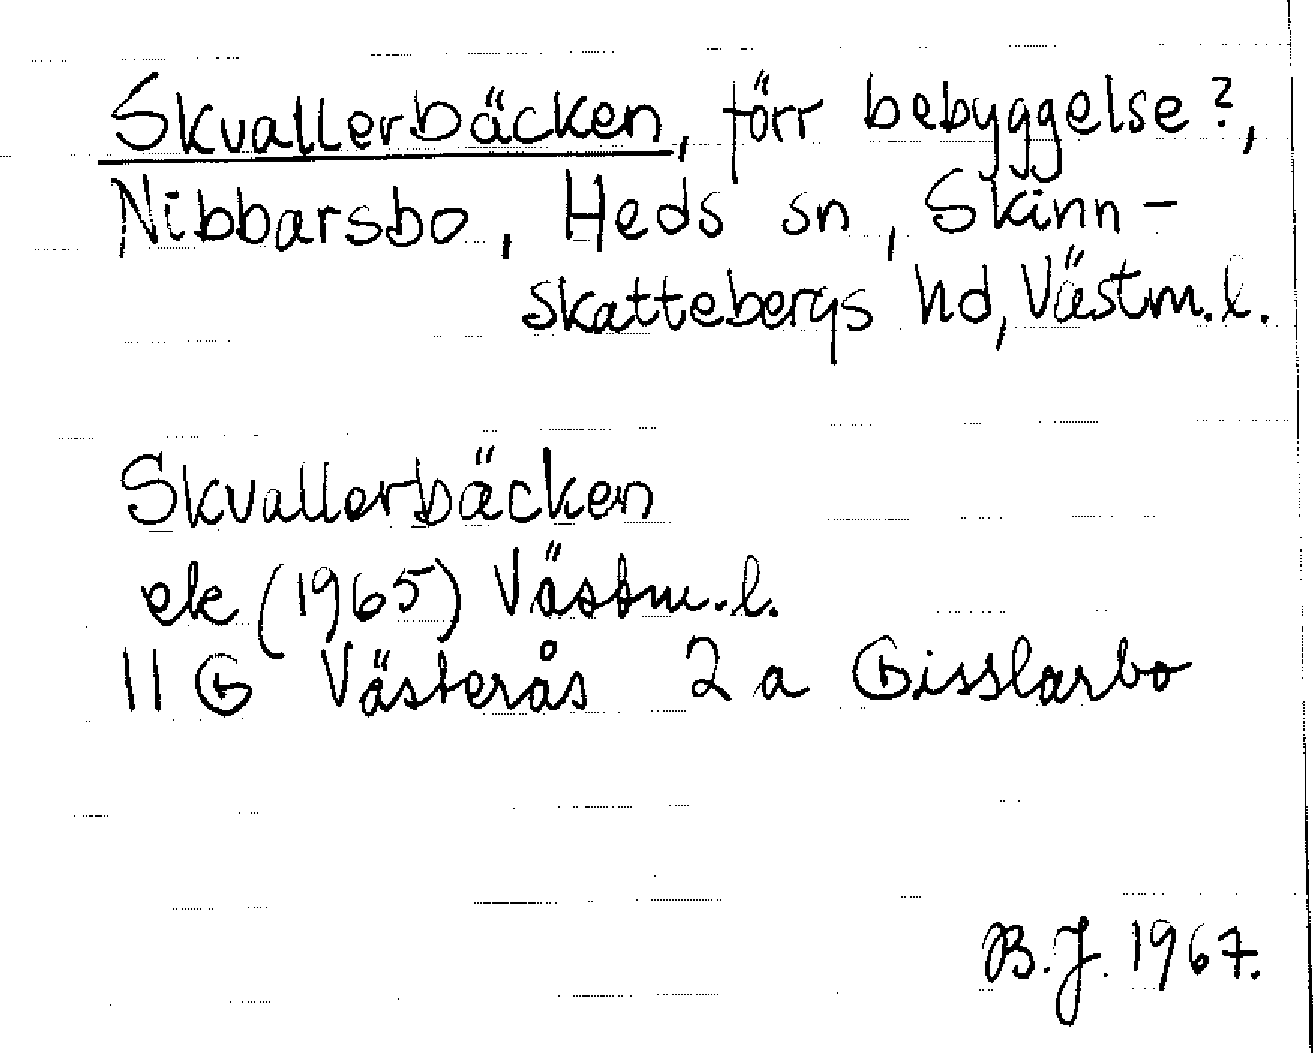 Skvallerbäcken, förr bebyggelse?,
Nibbarsbo, Heds sn, Skinn-
skattebergs hd, Västm.l.
Skvallerbäcken
ek (1965) Västm.l.
11 G Västerås 2 a Gisslarbo
B.J. 1967.